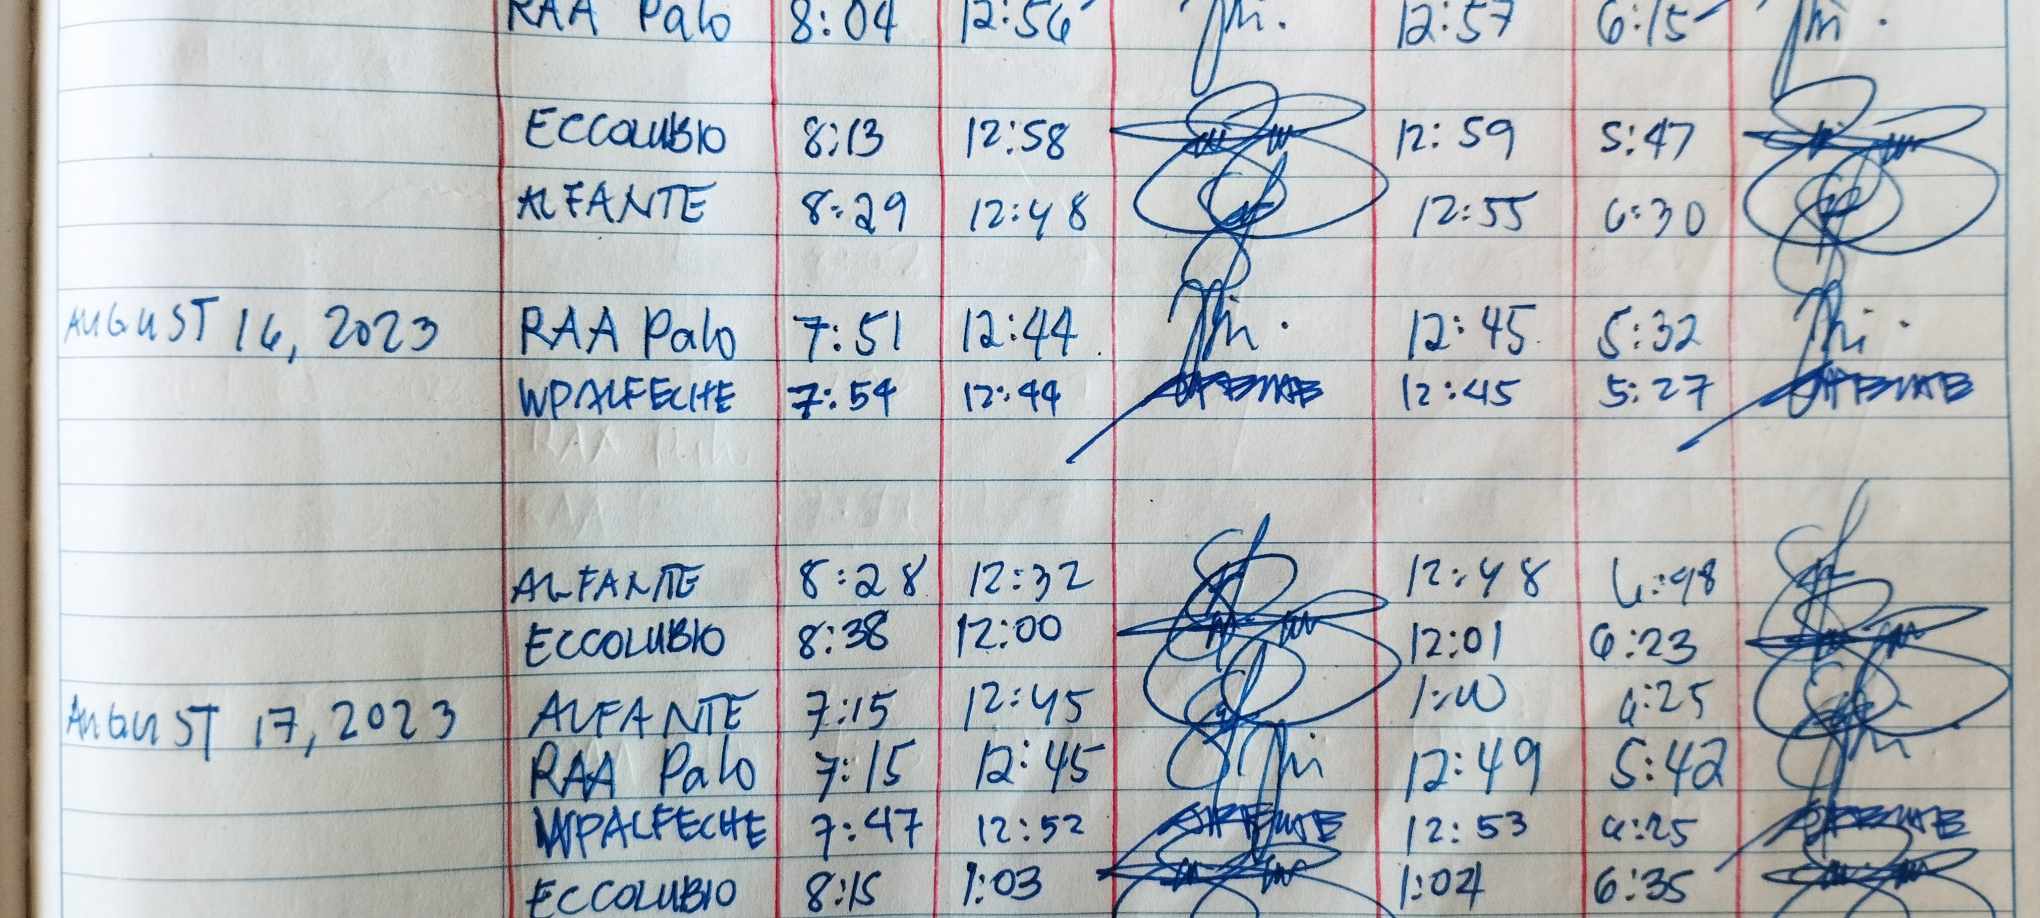 RAA Palo 8:04 12:56 12:57 6:15
ECCOLUBIO 8:13 12:58 12:59 5:47
ALFANTE 8:29 12:48 12:55 6:30
AUGUST 16, 2023 RAA Palo 7:51 12:44 12:45 5:32
WPALFECHE 7:54 12:44 12:45 5:27
ALFANTE 8:28 12:32 12:48 6:48
ECCOLUBIO 8:38 12:00 12:01 6:23
AUGUST 17, 2023 ALFANTE 7:15 12:45 1:00 6:25
RAA Palo 7:15 12:45 12:49 5:42
WPALFECHE 7:47 12:52 12:53 6:25
ECCOLUBIO 8:15 1:03 1:04 6:35